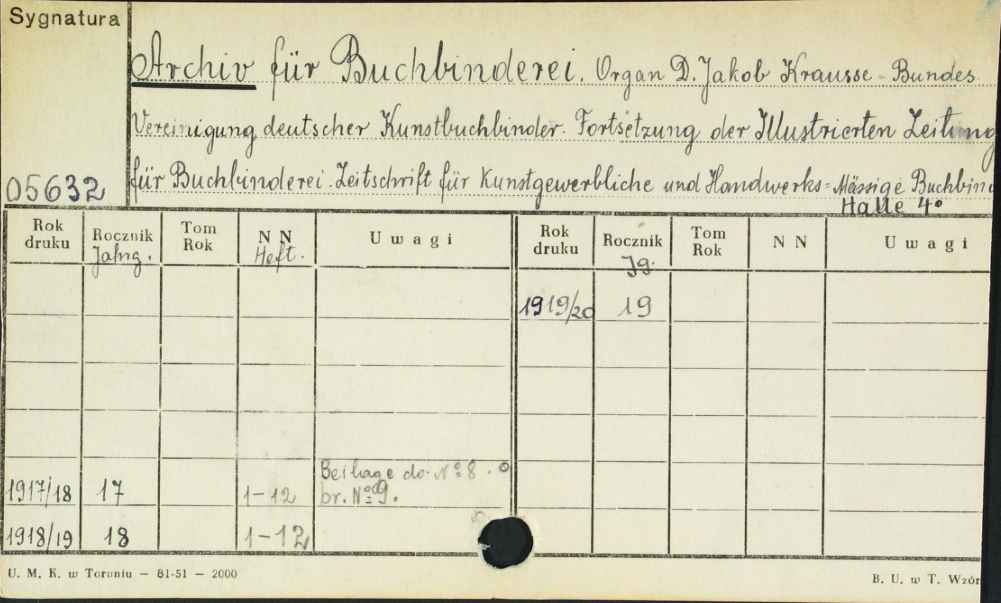 Sygnatura
Archiv für Buchbinderei. Organ D. Jakob Krausse-Bundes
Vereinigung deutscher Kunstbuchbinder. Fortsetzung der Illustrierten Zeitung
05632
für Buchbinderei. Zeitschrift für Kunstgewerbliche und Handwerks=Mässige Buchbin
Halle 4°
Rok druku Rocznik Jahrg. Tom Rok NN Heft. Uwagi Rok druku Rocznik Jg. Tom Rok NN Uwagi
1919/20 19
Beilage do Nº 8.
1917/18 17 1-12 br. Nº 9.
1918/19 18 1-12
U. M. K. w Toruniu — 81-51 — 2000 B. U. w T. Wzór